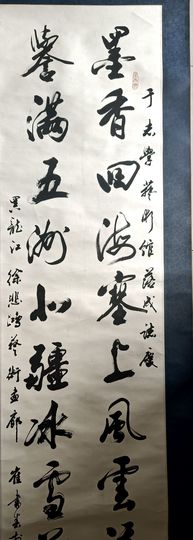 于志學藝術館落成誌慶
墨香四海塞上風雲
譽滿五洲北疆冰雪
黑龍江徐悲鴻藝術畫廊 崔書